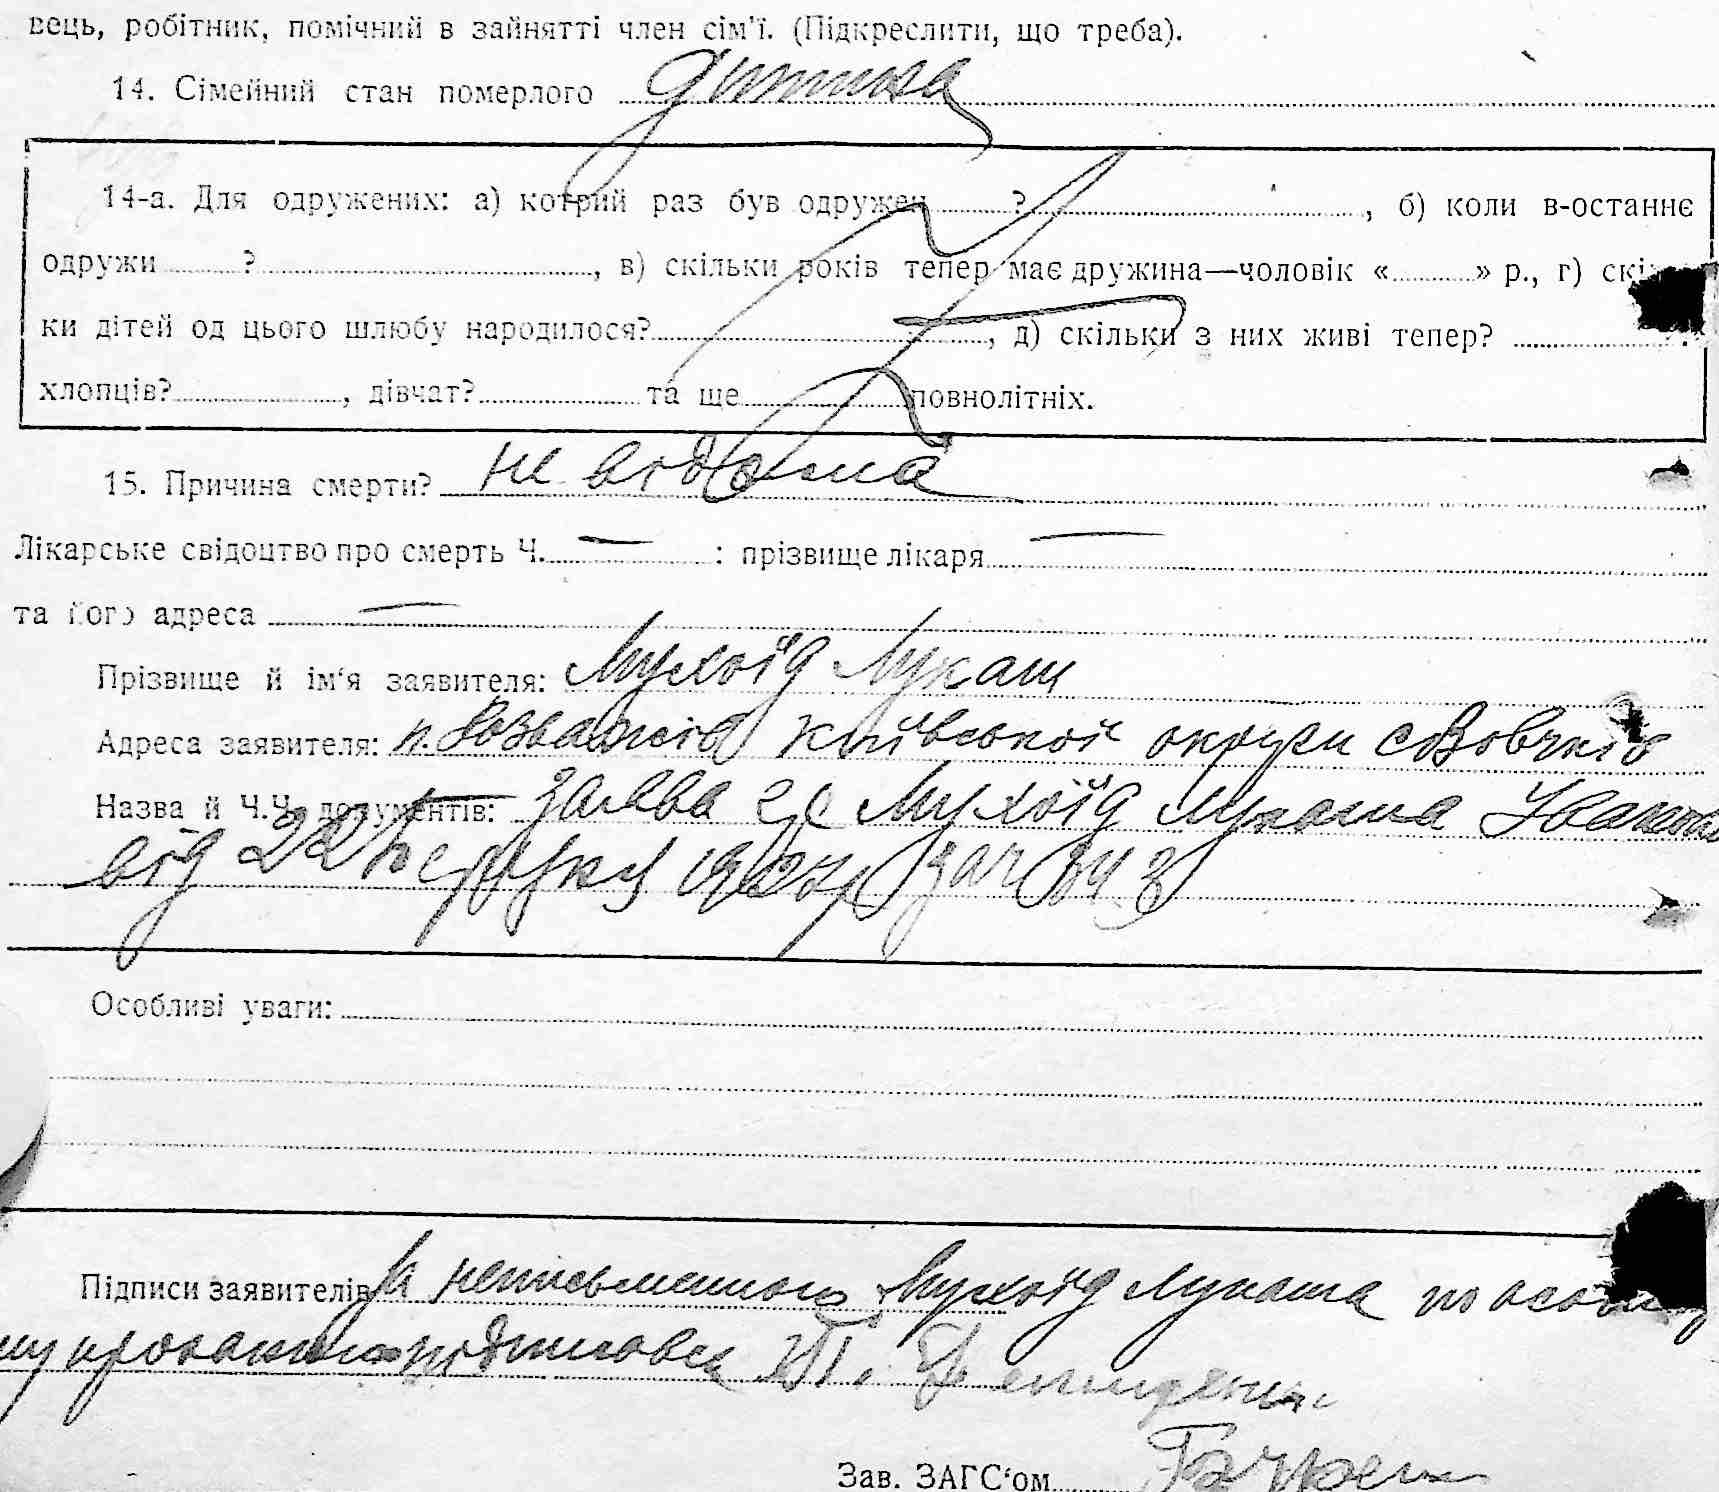 вець, робітник, помічний в зайнятті член сім'ї. (Підкреслити, що треба).
14. Сімейний стан померлого дитина
14-а. Для одружених: а) котрий раз був одружен ? , б) коли в-останнє
одружи ? , в) скільки років тепер має дружина—чоловік « » р., г) скі
ки дітей од цього шлюбу народилося? , д) скільки з них живі тепер?
хлопців? , дівчат? та ще повнолітніх.
15. Причина смерти? не відома
Лікарське свідоцтво про смерть Ч. — : прізвище лікаря —
та його адреса —
Прізвище й ім'я заявителя: Мухоїд Лукаш
Адреса заявителя: Розважів Київської округи с Вовчків
Назва й Ч.Ч. документів: заява гр Мухоїд Лукаша Іванов
від 22
Особливі уваги:
Підписи заявителів неписьменного Мухоїд Лукаша по особ
му проханню підписався
Зав. ЗАГС'ом